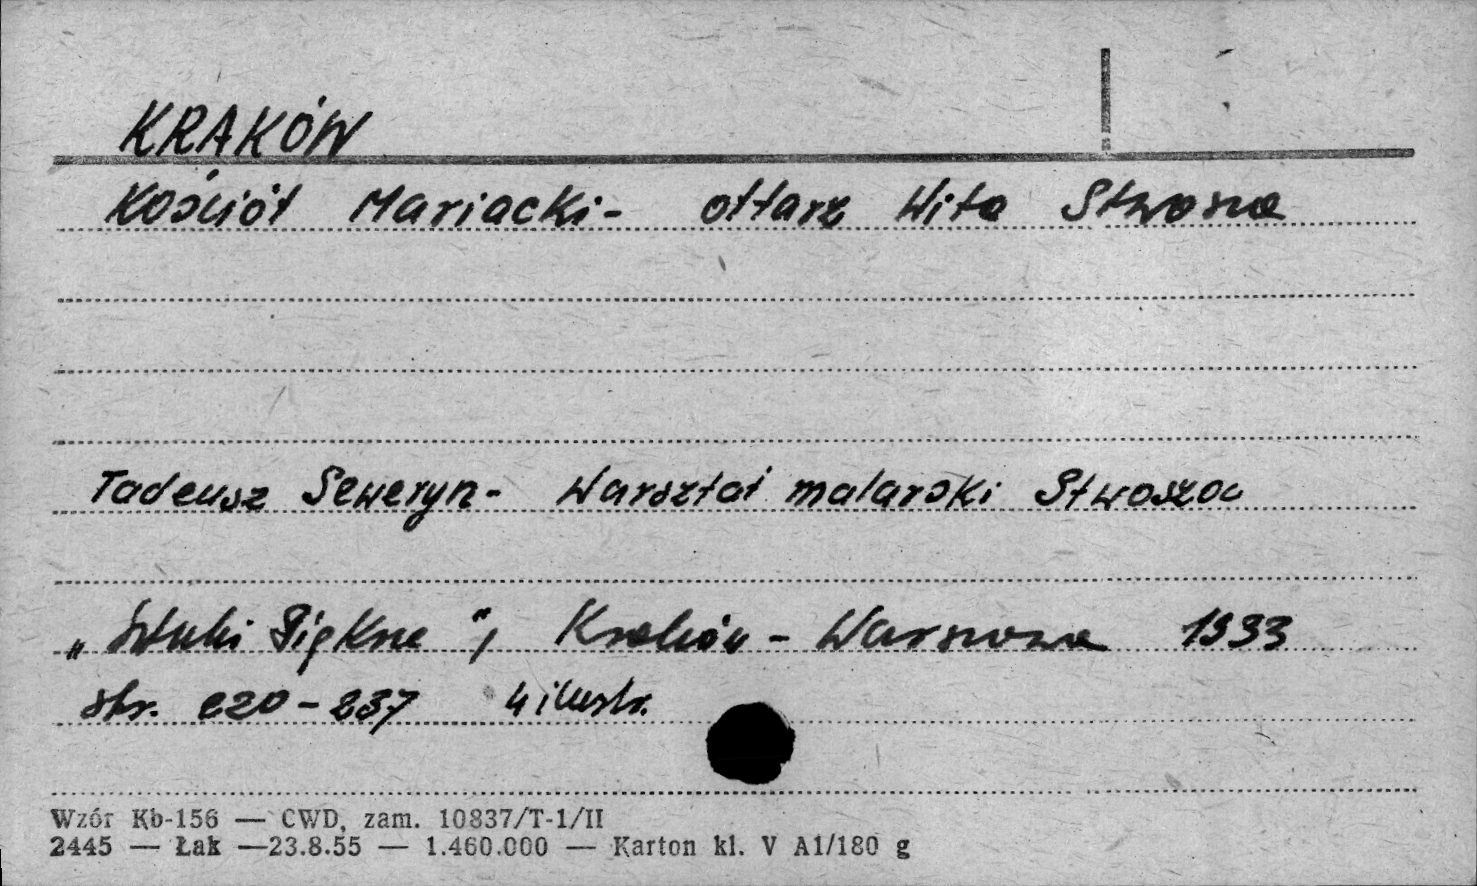 KRAKÓW
Kościół Mariacki - ołtarz Wita Stwosza
Tadeusz Seweryn - Warsztat malarski Stwosza
„Sztuki Piękne", Kraków - Warszawa 1933
str. 220 - 237 4 ilustr.
Wzór Kb-156 — CWD, zam. 10837/T-1/II
2445 — Łak —23.8.55 — 1.460.000 — Karton kl. V A1/180 g